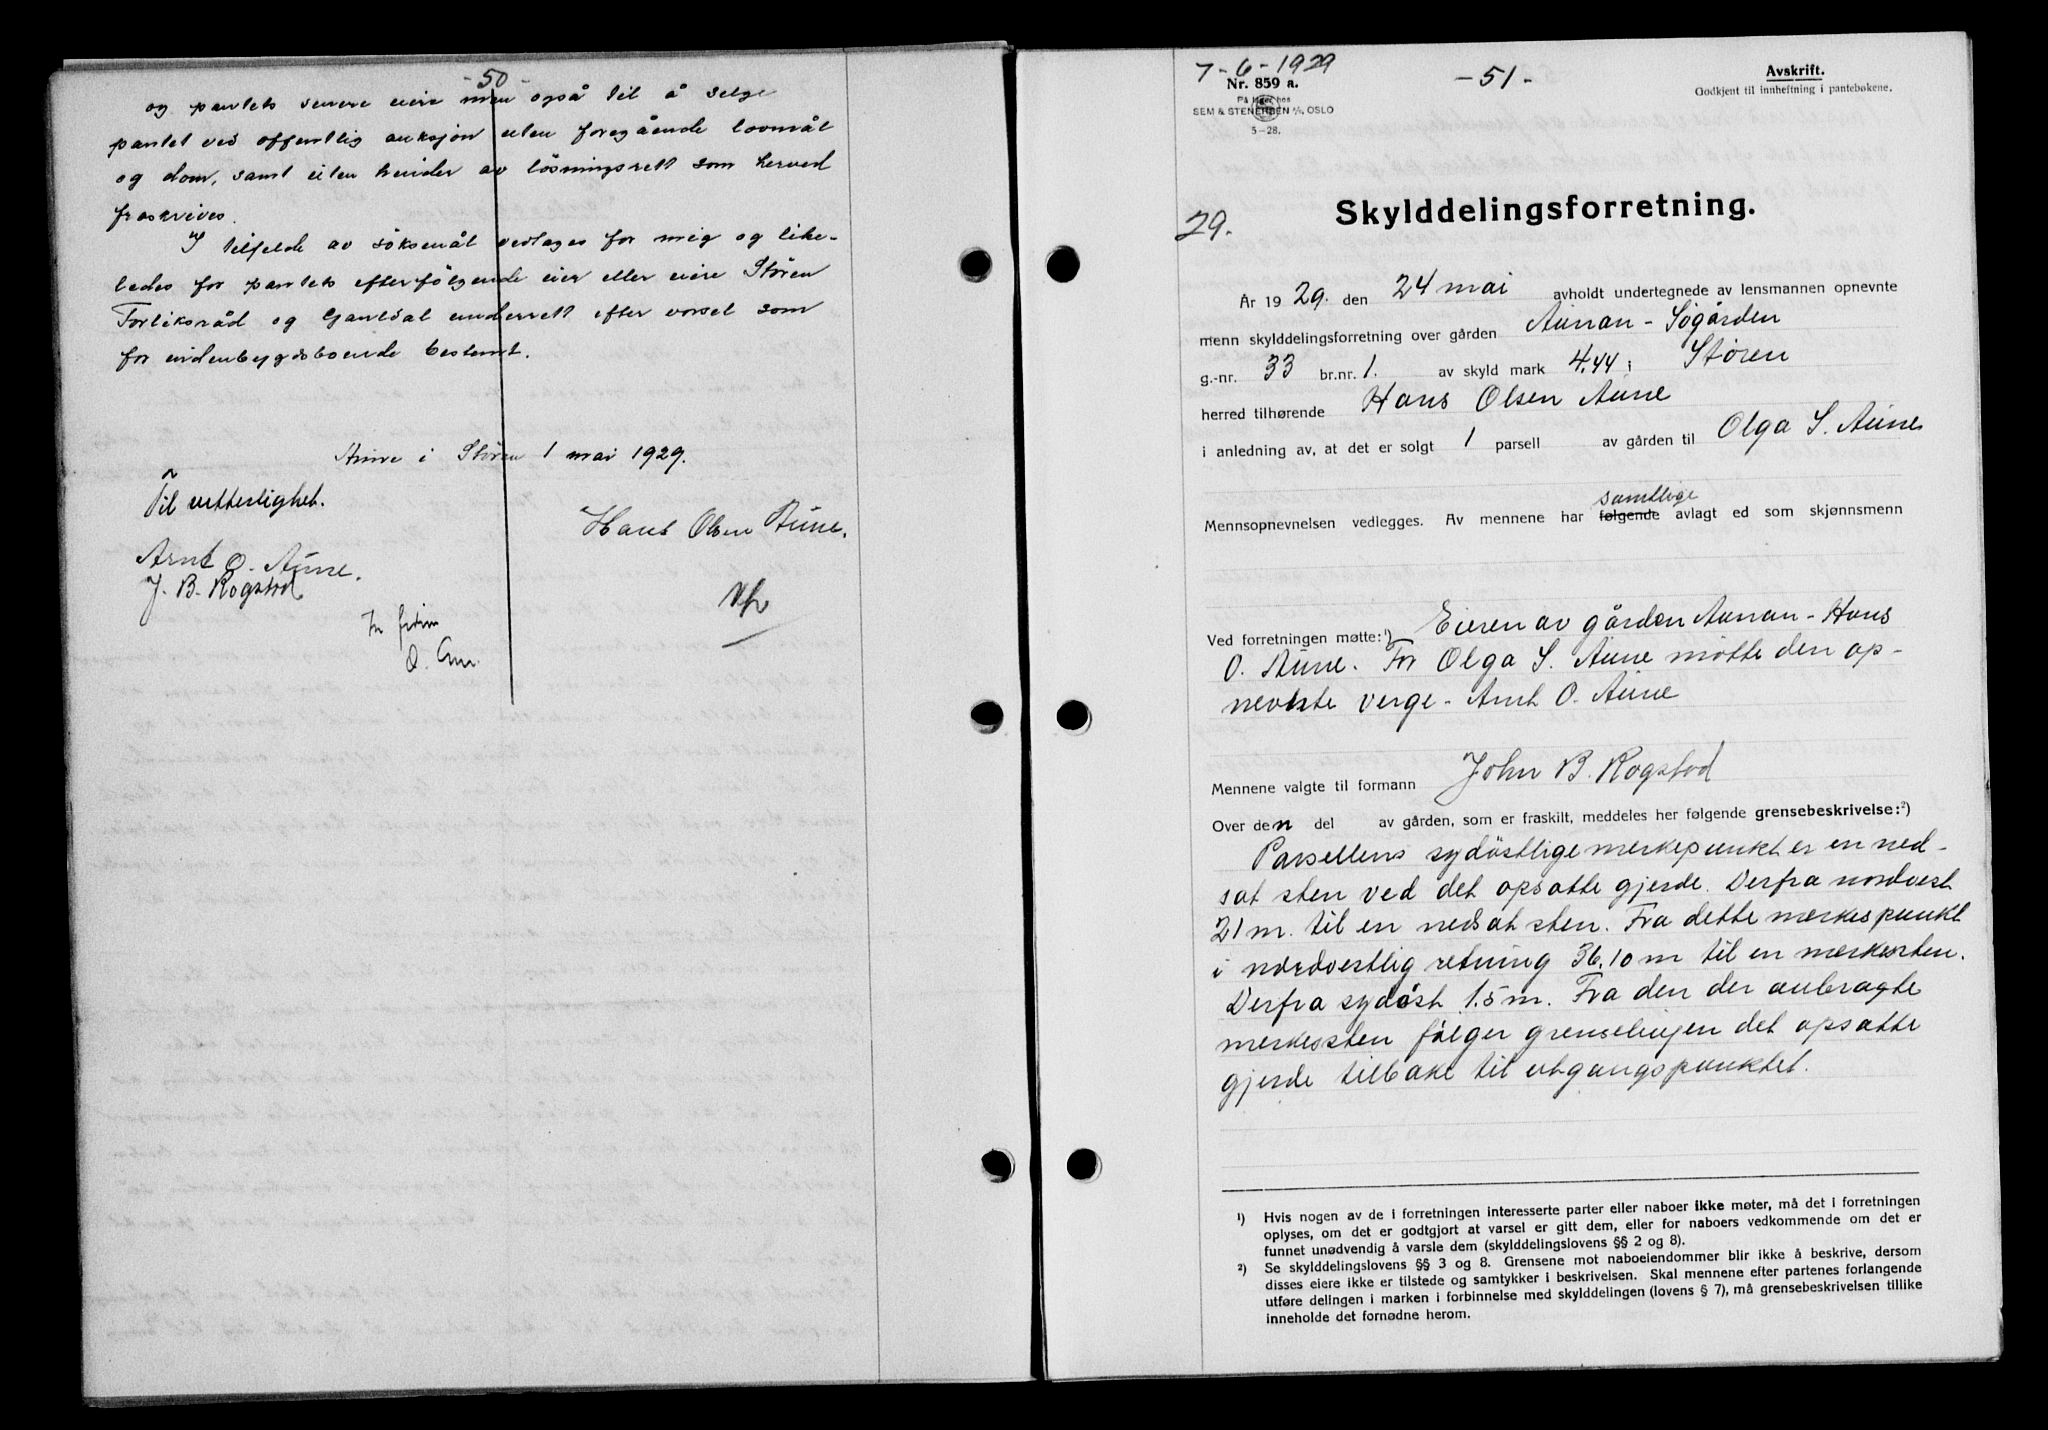 - 50 -
og pantets senere eiere men også til å selge
pantet ved offentlig auksjon uten foregående lovmål
og dom, samt uten hinder av løsningsrett som herved
fraskrives.
I tilfelde av søksmål vedtages for mig og like-
ledes for pantets efterfølgende eier eller eiere Støren
Forliksråd og Gauldal underrett efter varsel som
for indenbygdsboende bestemt.
Aune i Støren 1 mai 1929.
Til vitterlighet.
Hans Olsen Aune.
Arnt O. Aune.
J. B. Rogstad
7-6-1929
Nr. 859 a.
På lager hos
SEM & STENERSEN A/S, OSLO
5-28.
- 51 -
Avskrift.
Godkjent til innheftning i pantebøkene.
29.
Skylddelingsforretning.
År 1929. den 24 mai avholdt undertegnede av lensmannen opnevnte
menn skylddelingsforretning over gården Aunan - Søgården
g.-nr. 33 br.nr. 1. av skyld mark 4.44 i Støren
herred tilhørende Hans Olsen Aune
i anledning av, at det er solgt 1 parsell av gården til Olga S. Aune
samtlige
Mennsopnevnelsen vedlegges. Av mennene har følgende avlagt ed som skjønnsmenn
Ved forretningen møtte:¹) Eieren av gården Aunan - Hans
O. Aune. For Olga S. Aune møtte den op-
nevnte verge - Arnt O. Aune
Mennene valgte til formann John B. Rogstad
Over den del av gården, som er fraskilt, meddeles her følgende grensebeskrivelse:²)
Parsellens sydøstlige merkepunkt er en ned-
sat sten ved det opsatte gjerde. Derfra nordvest
21 m. til en nedsat sten. Fra dette merkespunkt
i nordvestlig retning 36,10 m til en merkesten.
Derfra sydøst 1.5 m. Fra den der anbragte
merkessten følger grenselinjen det opsatte
gjerde tilbake til utgangspunktet.
¹) Hvis nogen av de i forretningen interesserte parter eller naboer ikke møter, må det i forretningen
oplyses, om det er godtgjort at varsel er gitt dem, eller for naboers vedkommende om det er
funnet unødvendig å varsle dem (skylddelingslovens §§ 2 og 8).
²) Se skylddelingslovens §§ 3 og 8. Grensene mot naboeiendommer blir ikke å beskrive, dersom
disses eiere ikke er tilstede og samtykker i beskrivelsen. Skal mennene efter partenes forlangende
utføre delingen i marken i forbinnelse med skylddelingen (lovens § 7), må grensebeskrivelsen tillike
inneholde det fornødne herom.